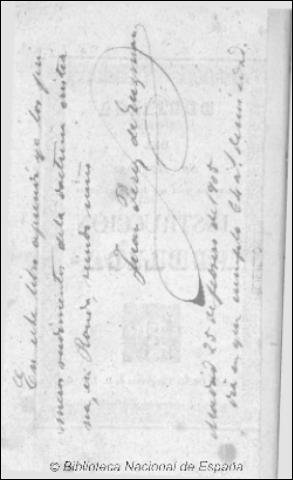 En este libro aprendi yo los pri
meros rudimentos de la doctrina cristia
na, en Ronda, siendo niño
Juan Perez de Guzman
Madrid 25 de febrero de 1905
dia en que cumplo de mi edad.
INSTRUCCIÓN
© Biblioteca Nacional de España